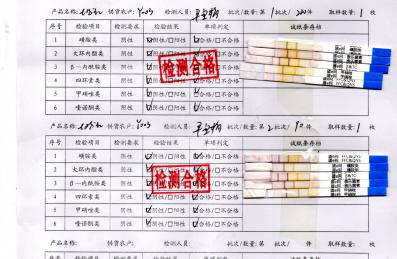 产品名称: 供货农户: Y003 检测人员: 批次/数量: 第 1 批次/ 件 取样数量: 1 枚
序号 检验项目 检测要求 检验结果 单项判定 试纸条存档
1 磺胺类 阴性 ☑阴性/□阳性 ☑合格/□不合格
2 大环内酯类 阴性 ☑阴性/□阳性 ☑合格/□不合格
3 β－内酰胺类 阴性 ☑阴性/□阳性 ☑合格/□不合格
4 四环素类 阴性 ☑阴性/□阳性 ☑合格/□不合格
5 甲硝唑类 阴性 ☑阴性/□阳性 ☑合格/□不合格
6 喹诺酮类 阴性 ☑阴性/□阳性 ☑合格/□不合格
检测合格
产品名称: 供货农户: Y003 检测人员: 批次/数量: 第 2 批次/ 90 件 取样数量: 1 枚
序号 检验项目 检测要求 检验结果 单项判定 试纸条存档
1 磺胺类 阴性 ☑阴性/□阳性 ☑合格/□不合格
2 大环内酯类 阴性 ☑阴性/□阳性 ☑合格/□不合格
3 β－内酰胺类 阴性 ☑阴性/□阳性 ☑合格/□不合格
4 四环素类 阴性 ☑阴性/□阳性 ☑合格/□不合格
5 甲硝唑类 阴性 ☑阴性/□阳性 ☑合格/□不合格
6 喹诺酮类 阴性 ☑阴性/□阳性 ☑合格/□不合格
检测合格
产品名称: 供货农户: 检测人员: 批次/数量: 第 批次/ 件 取样数量: 枚
序号 检验项目 检测要求 检验结果 单项判定